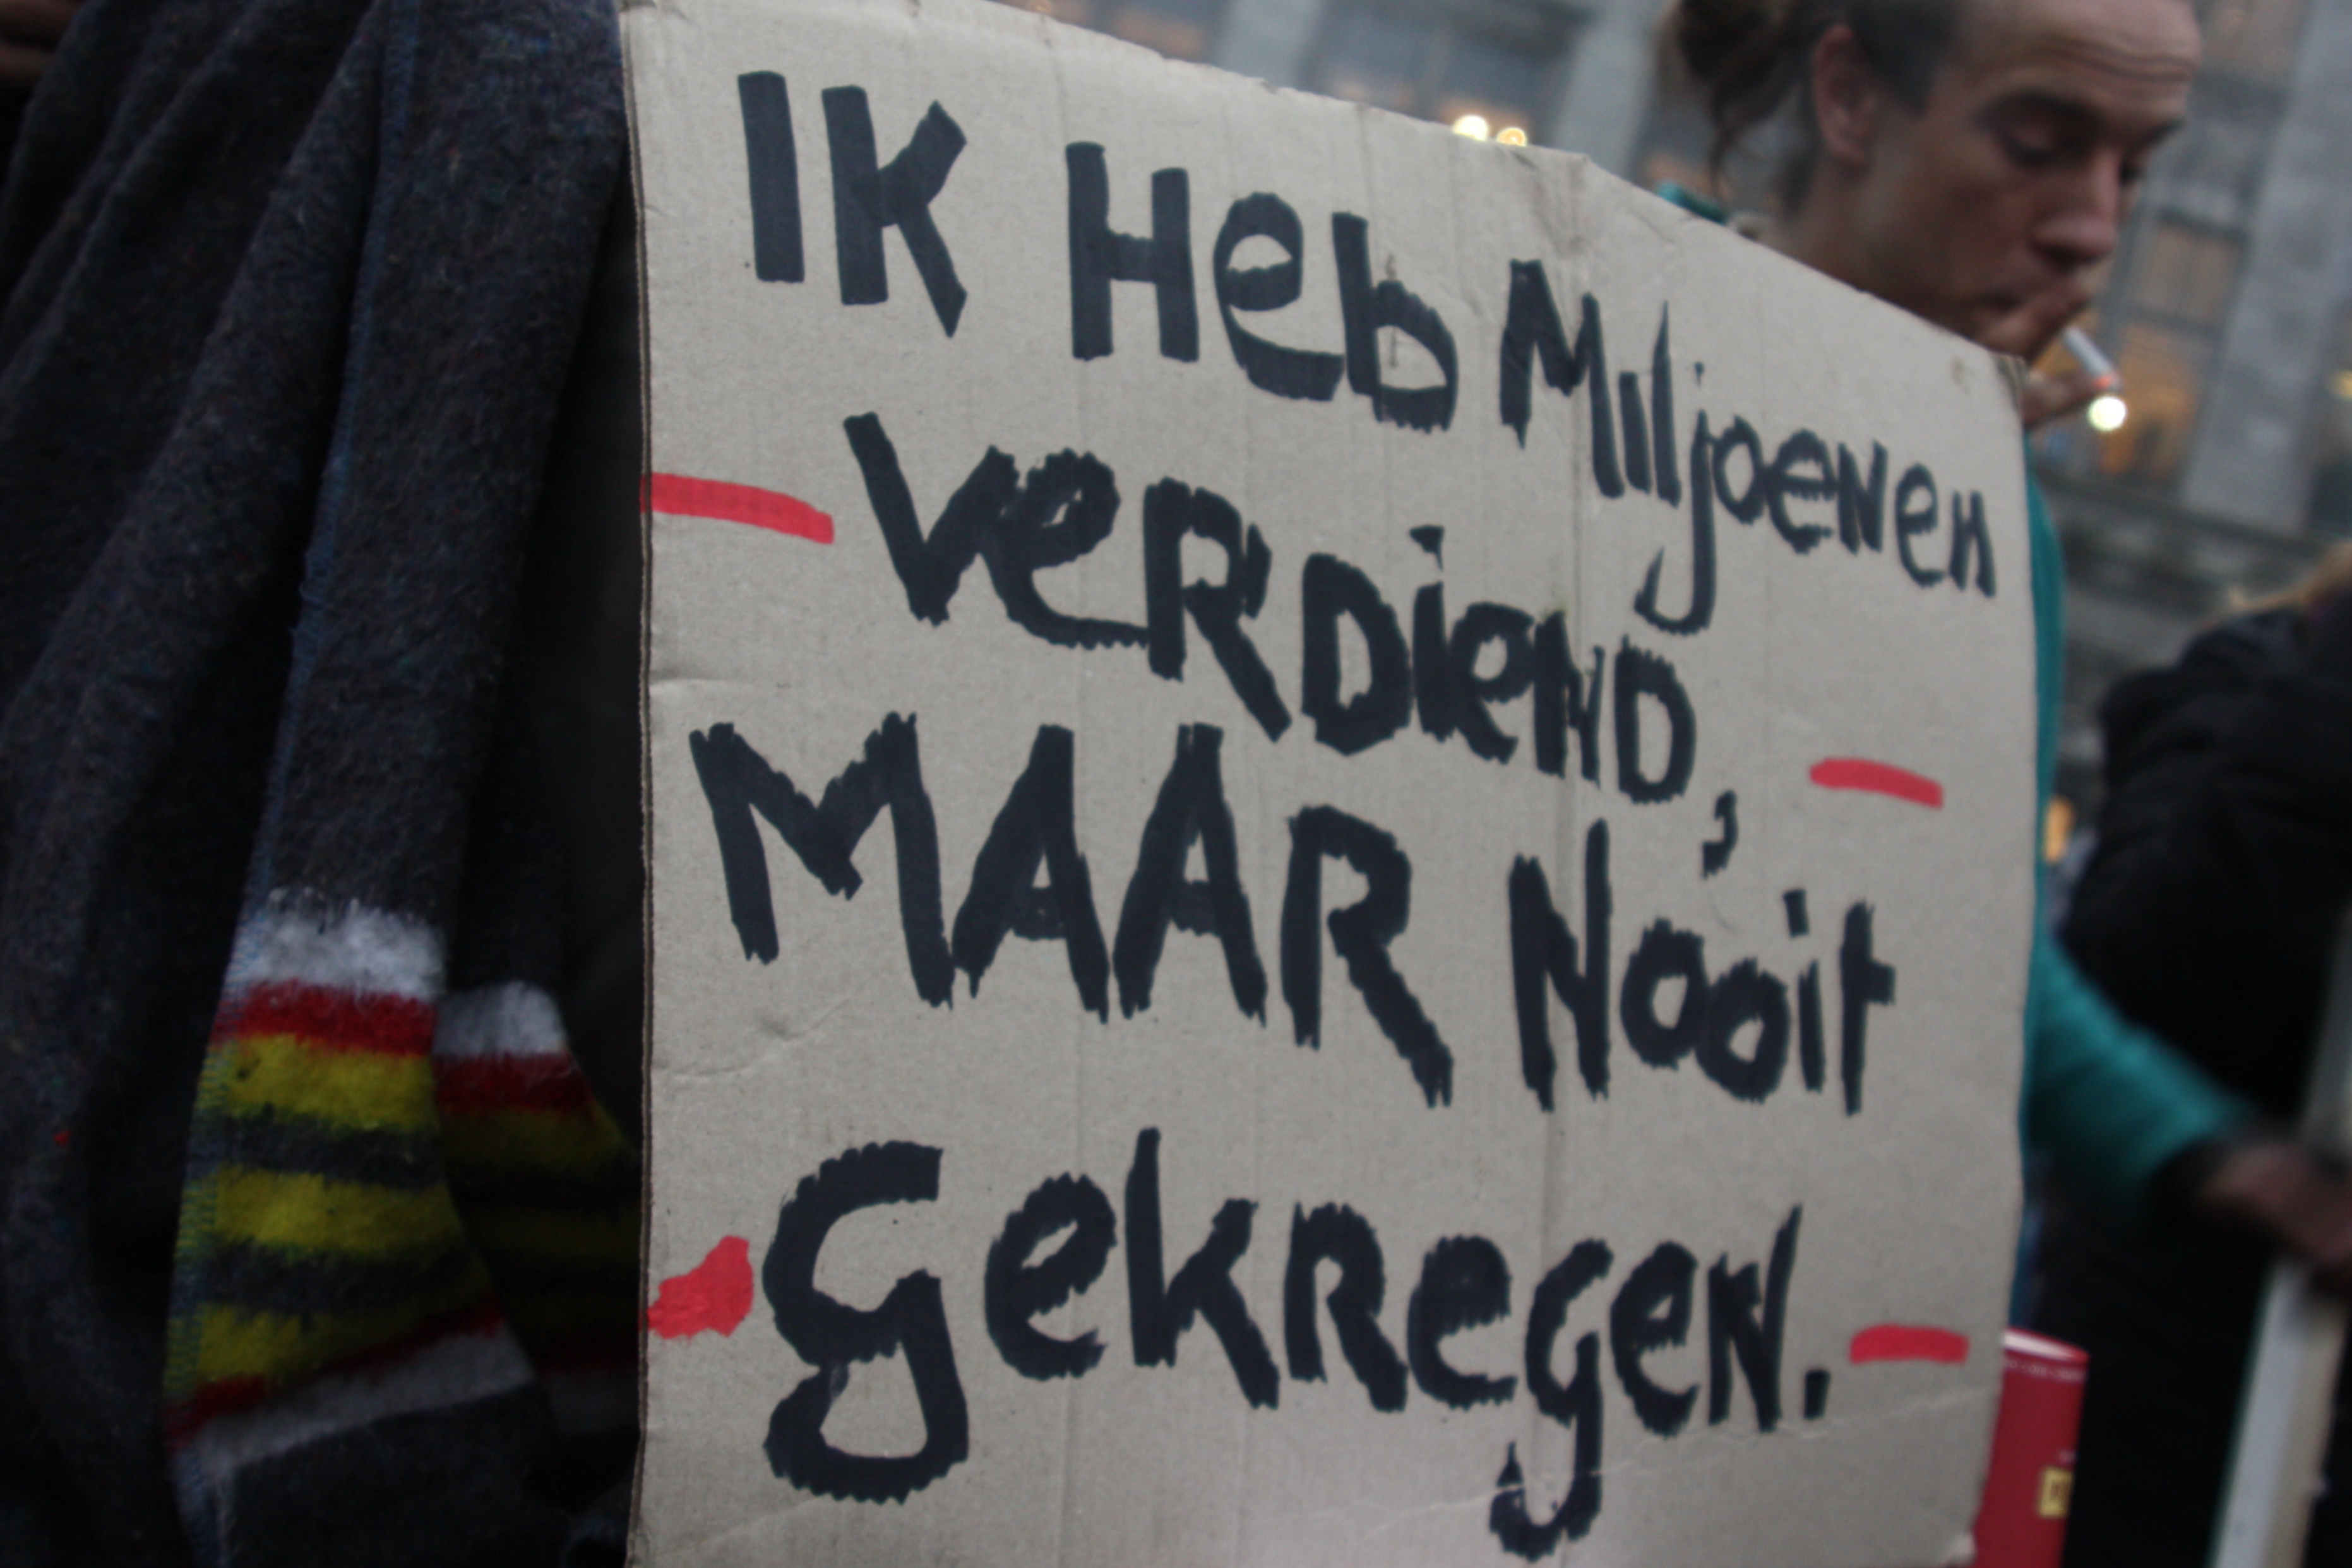 IK Heb Miljoenen
VerDienD,
MAAR Nooit
gekregen.